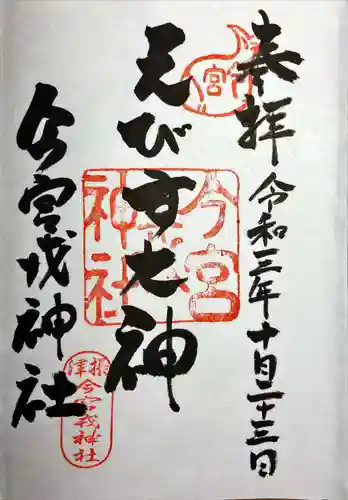 奉拝
令和三年十月二十三日
えびす大神
今宮戎神社
宮
今宮戎神社
摂津
今宮戎神社